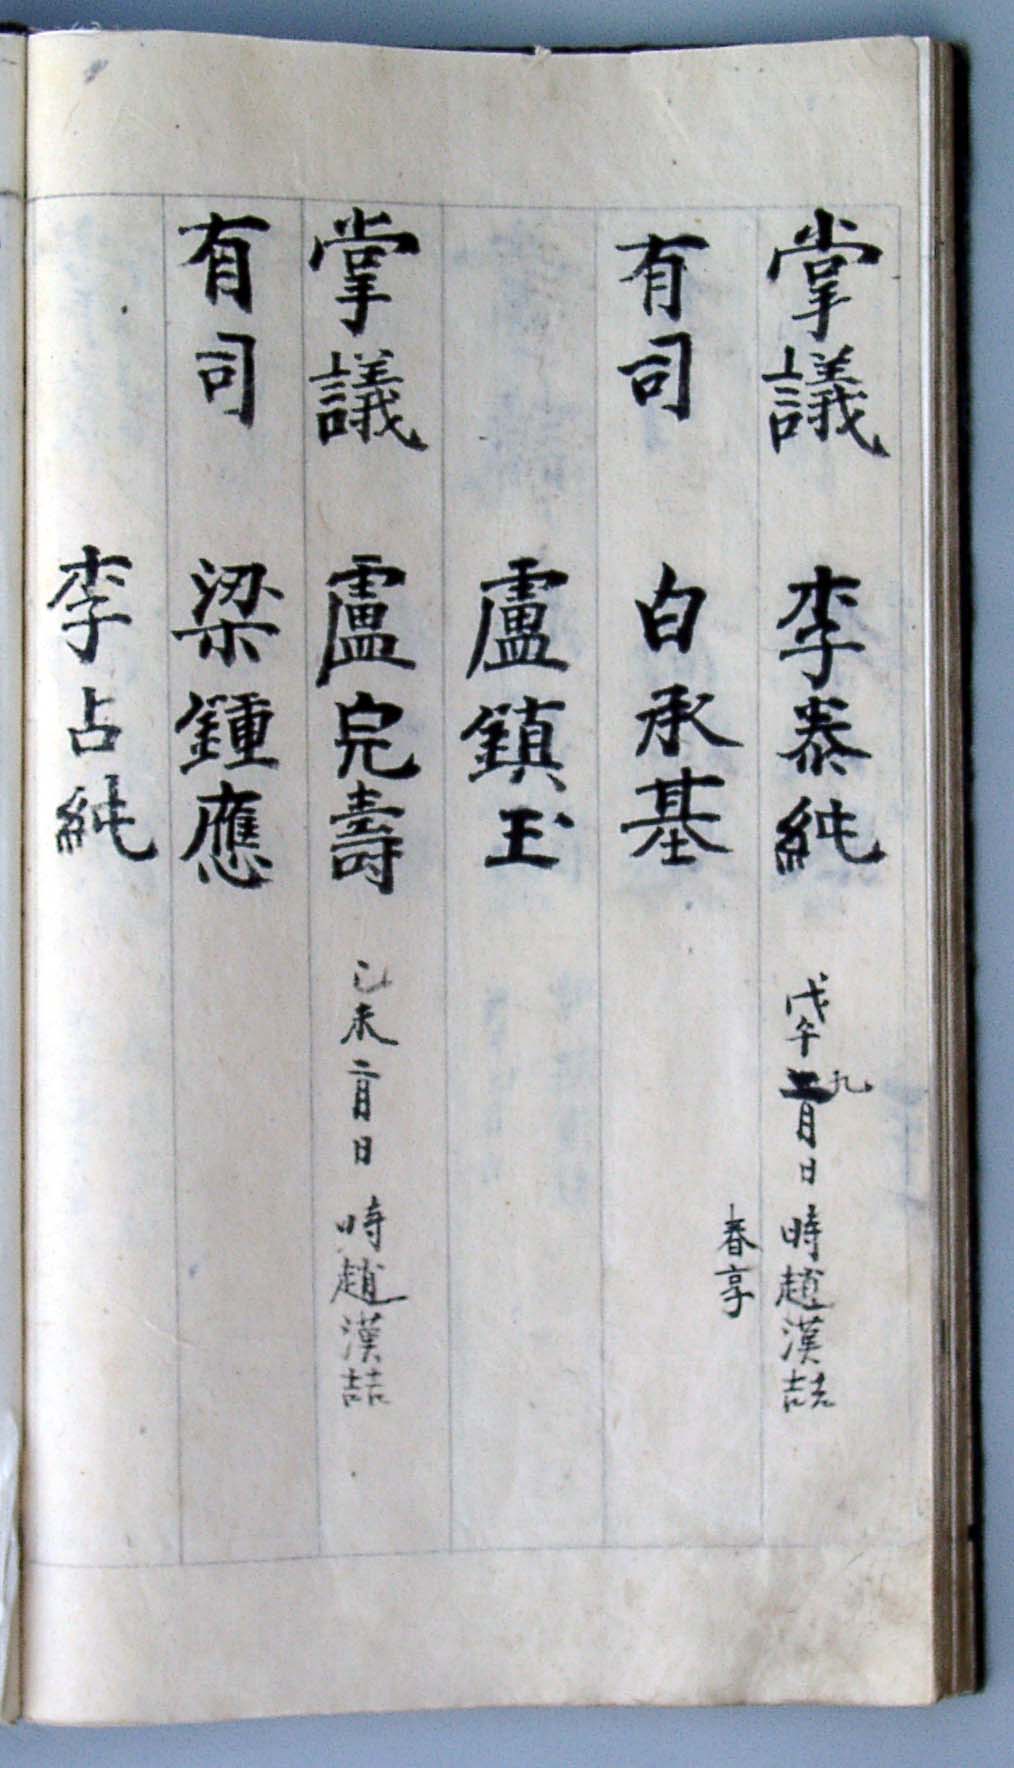 掌議 李泰純 戊午九月日 時趙漢喆
春享
有司 白承基
盧鎮玉
掌議 盧完壽 己未二月日 時趙漢喆
有司 梁鍾應
李占純